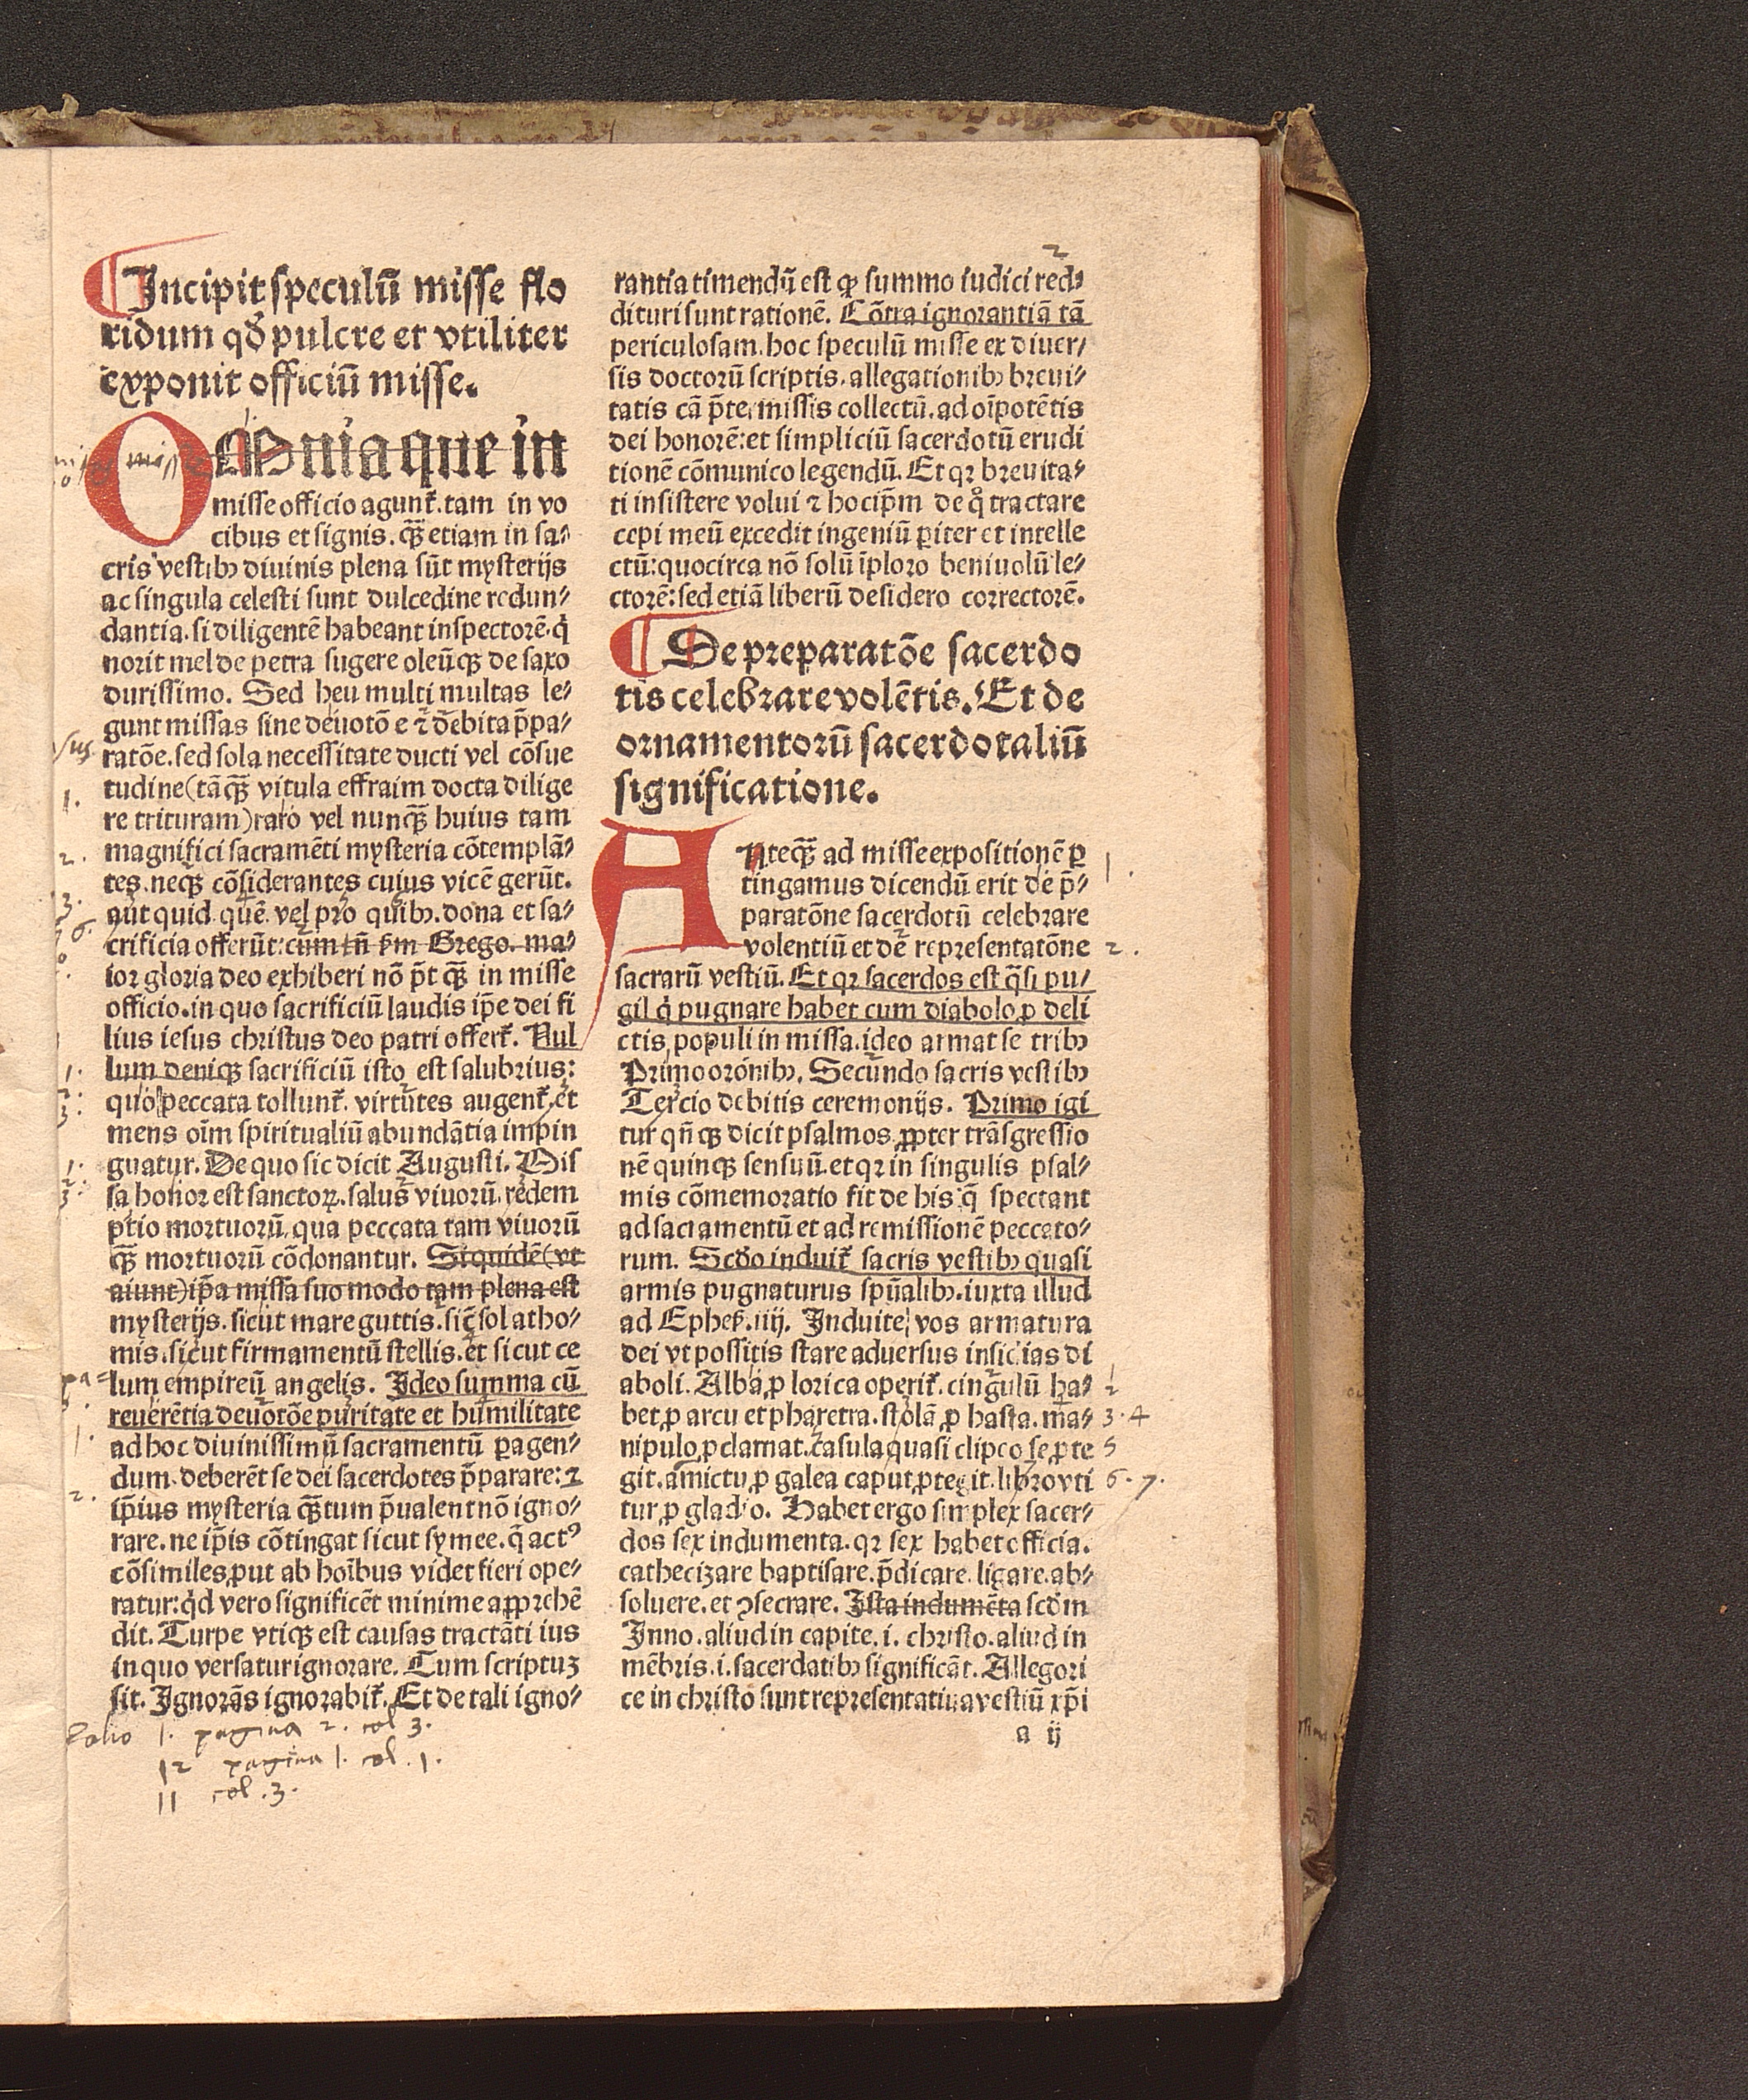 Incipit speculū misse flo
ridum qď pulcre et vtiliter
exponit officiū misse.
OMnia que in
misse officio agunt̄. tam in vo
cibus et signis. qꝫ̄ etiam in sa⸗
cris vestibꝫ diuinis plena sūt mysterijs
ac singula celesti sunt dulcedine redun⸗
dantia. si diligentē habeant inspectorē. q̇
norit mel de petra sugere oleūqꝫ de saxo
durissimo. Sed heu multi multas le⸗
gunt missas sine deuotōe ⁊ debita p̄pa⸗
ratōe. sed sola necessitate ducti vel cōsue
tudine (tāqꝫ̄ vitula effraim docta dilige
re trituram) raro vel nunqꝫ̄ huius tam
magnifici sacramēti mysteria cōtemplā⸗
tes. neqꝫ cōsiderantes cuius vicē gerūt.
aut quid quē. vel pro quibꝫ. dona et sa⸗
crificia offerūt: cum tn̄ ẜm Grego. ma⸗
ior gloria deo exhiberi nō p̄t qꝫ̄ in misse
officio. in quo sacrificiū laudis ip̄e dei fi
lius iesus christus deo patri offert̄. Nul
lum deniqꝫ sacrificiū isto est salubrius:
quo peccata tollunt̄. virtutes augent̄. et
mens oīm spiritualiū abundātia impin
guatur. De quo sic dicit Augusti. Mis
sa honor est sanctoꝝ. salus viuorū. redem
ptio mortuorū. qua peccata tam viuorū
qꝫ̄ mortuorū cōdonantur. Siquidē (vt
aiunt) ip̄a missa suo modo tam plena est
mysterijs. sicut mare guttis. sic̄ sol atho⸗
mis. sicut firmamentū stellis. et sicut ce
lum empireū angelis. Ideo summa cū
reuerētia deuotōe puritate et humilitate
ad hoc diuinissimū sacramentū ꝑagen⸗
dum. deberēt se dei sacerdotes p̄parare: ⁊
ip̄ius mysteria qꝫ̄tum p̄ualent nō igno⸗
rare. ne ip̄is cōtingat sicut symee. q̄ actꝰ
cōsimiles ꝓut ab hoībus videt fieri ope⸗
ratur: q̇d vero significēt minime apprehē
dit. Turpe vtiqꝫ est causas tractāti ius
in quo versatur ignorare. Cum scriptuꝫ
sit. Ignorās ignorabit̄. Et de tali igno⸗
Folio 1. pagina 2. col 3.
12 pagina 1. col. 1.
11 col. 3.
2
rantia timendū est ꝙ summo iudici red⸗
dituri sunt rationē. Cōtra ignorantiā tā
periculosam. hoc speculū misse ex diuer⸗
sis doctorū scriptis. allegationibꝫ breui⸗
tatis cā p̄termissis collectū. ad oīpotētis
dei honorē: et simpliciū sacerdotū erudi
tionē cōmunico legendū. Et qꝛ breuita⸗
ti insistere volui ⁊ hocip̄m de q̊ tractare
cepi meū excedit ingeniū ꝑiter et intelle
ctū: quocirca nō solū īploro beniuolū le⸗
ctorē: sed etiā liberū desidero correctorē.
De preparatōe sacerdo
tis celebrare volētis. Et de
ornamentorū sacerdotaliū
significatione.
ANteqꝫ̄ ad misse expositionē ꝑ
tingamus dicendū erit de p̄⸗
paratōne sacerdotū celebrare
volentiū et de representatōne
sacrarū vestiū. Et qꝛ sacerdos est q̄si pu⸗
gil q̇ pugnare habet cum diabolo ꝓ deli
ctis populi in missa. ideo armat se tribꝫ
Primo orōnibꝫ. Secundo sacris vestibꝫ
Tercio debitis ceremonijs. Primo igi
tur qn̄qꝫ dicit psalmos ꝓpter trāsgressio
nē quinqꝫ sensuū. et qꝛ in singulis psal⸗
mis cōmemoratio fit de his q̄ spectant
ad sacramentū et ad remissionē peccato⸗
rum. Scďo induit̄ sacris vestibꝫ quasi
armis pugnaturus spūalibꝫ. iuxta illud
ad Ephes̄. iiij. Induite vos armatura
dei vt possitis stare aduersus insidias di
aboli. Alba ꝓ lorica operit̄. cingulū ha⸗
bet ꝓ arcu et pharetra. stolā ꝓ hasta. ma⸗
nipulo ꝓ clarnat. casula quasi clipeo se ꝓte
git. amictu ꝓ galea caput ꝓtegit. libro vti
tur ꝓ gladio. Habet ergo simplex sacer⸗
dos sex indumenta. qꝛ sex habet officia.
cathecizare baptisare. p̄dicare. ligare. ab⸗
soluere. et ꝯsecrare. Ista indumēta scďm
Inno. aliud in capite. i. christo. aliud in
mēbris. i. sacerdotibꝫ significāt. Allegori
ce in christo sunt representatiua vestiū xp̄i
a ij